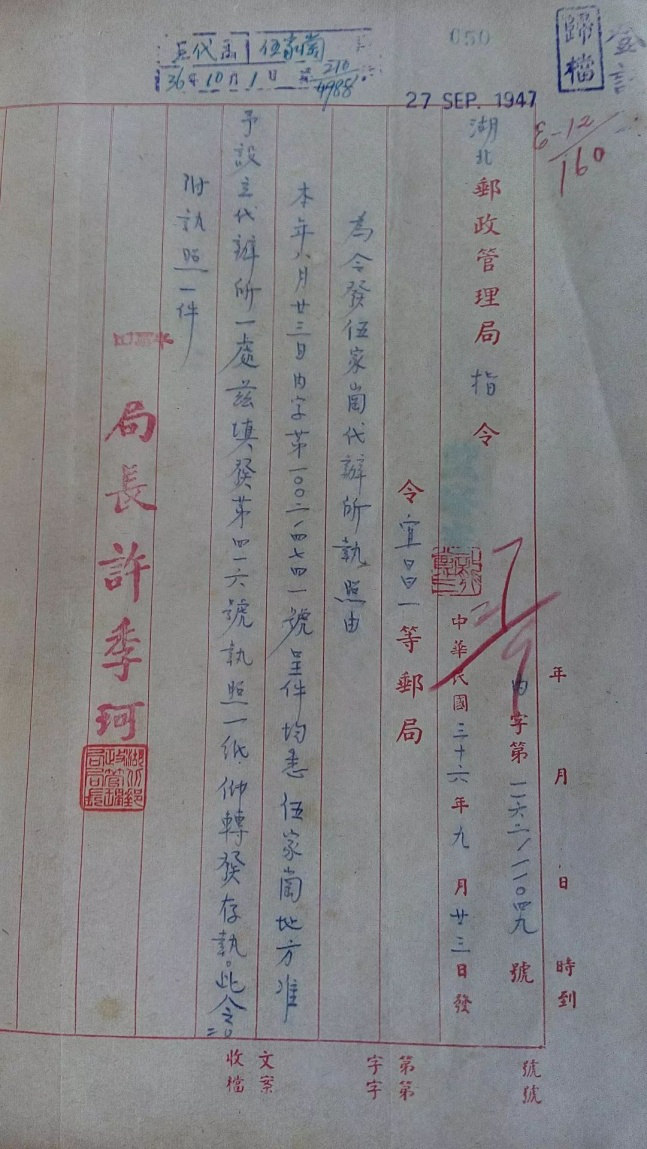 登記
歸檔
050
27 SEP. 1947
巨代函 伍家崗
36年10月1日 第210/4988
E-12/160
年 月 日 時到
內字第一六二/一一〇四九號
湖北郵政管理局指令
中華民國三十六年九月廿三日發
令宜昌一等郵局
為令發伍家崗代辦所執照由
本年八月廿三日內字第一〇二/四七四一號呈件均悉伍家崗地方准
予設立代辦所一處茲填發第四一六號執照一紙仰轉發存執。此令
附執照一件
局長許季珂
湖北郵政管理局局長
號 號
第 第
字 字
文 收
案 檔